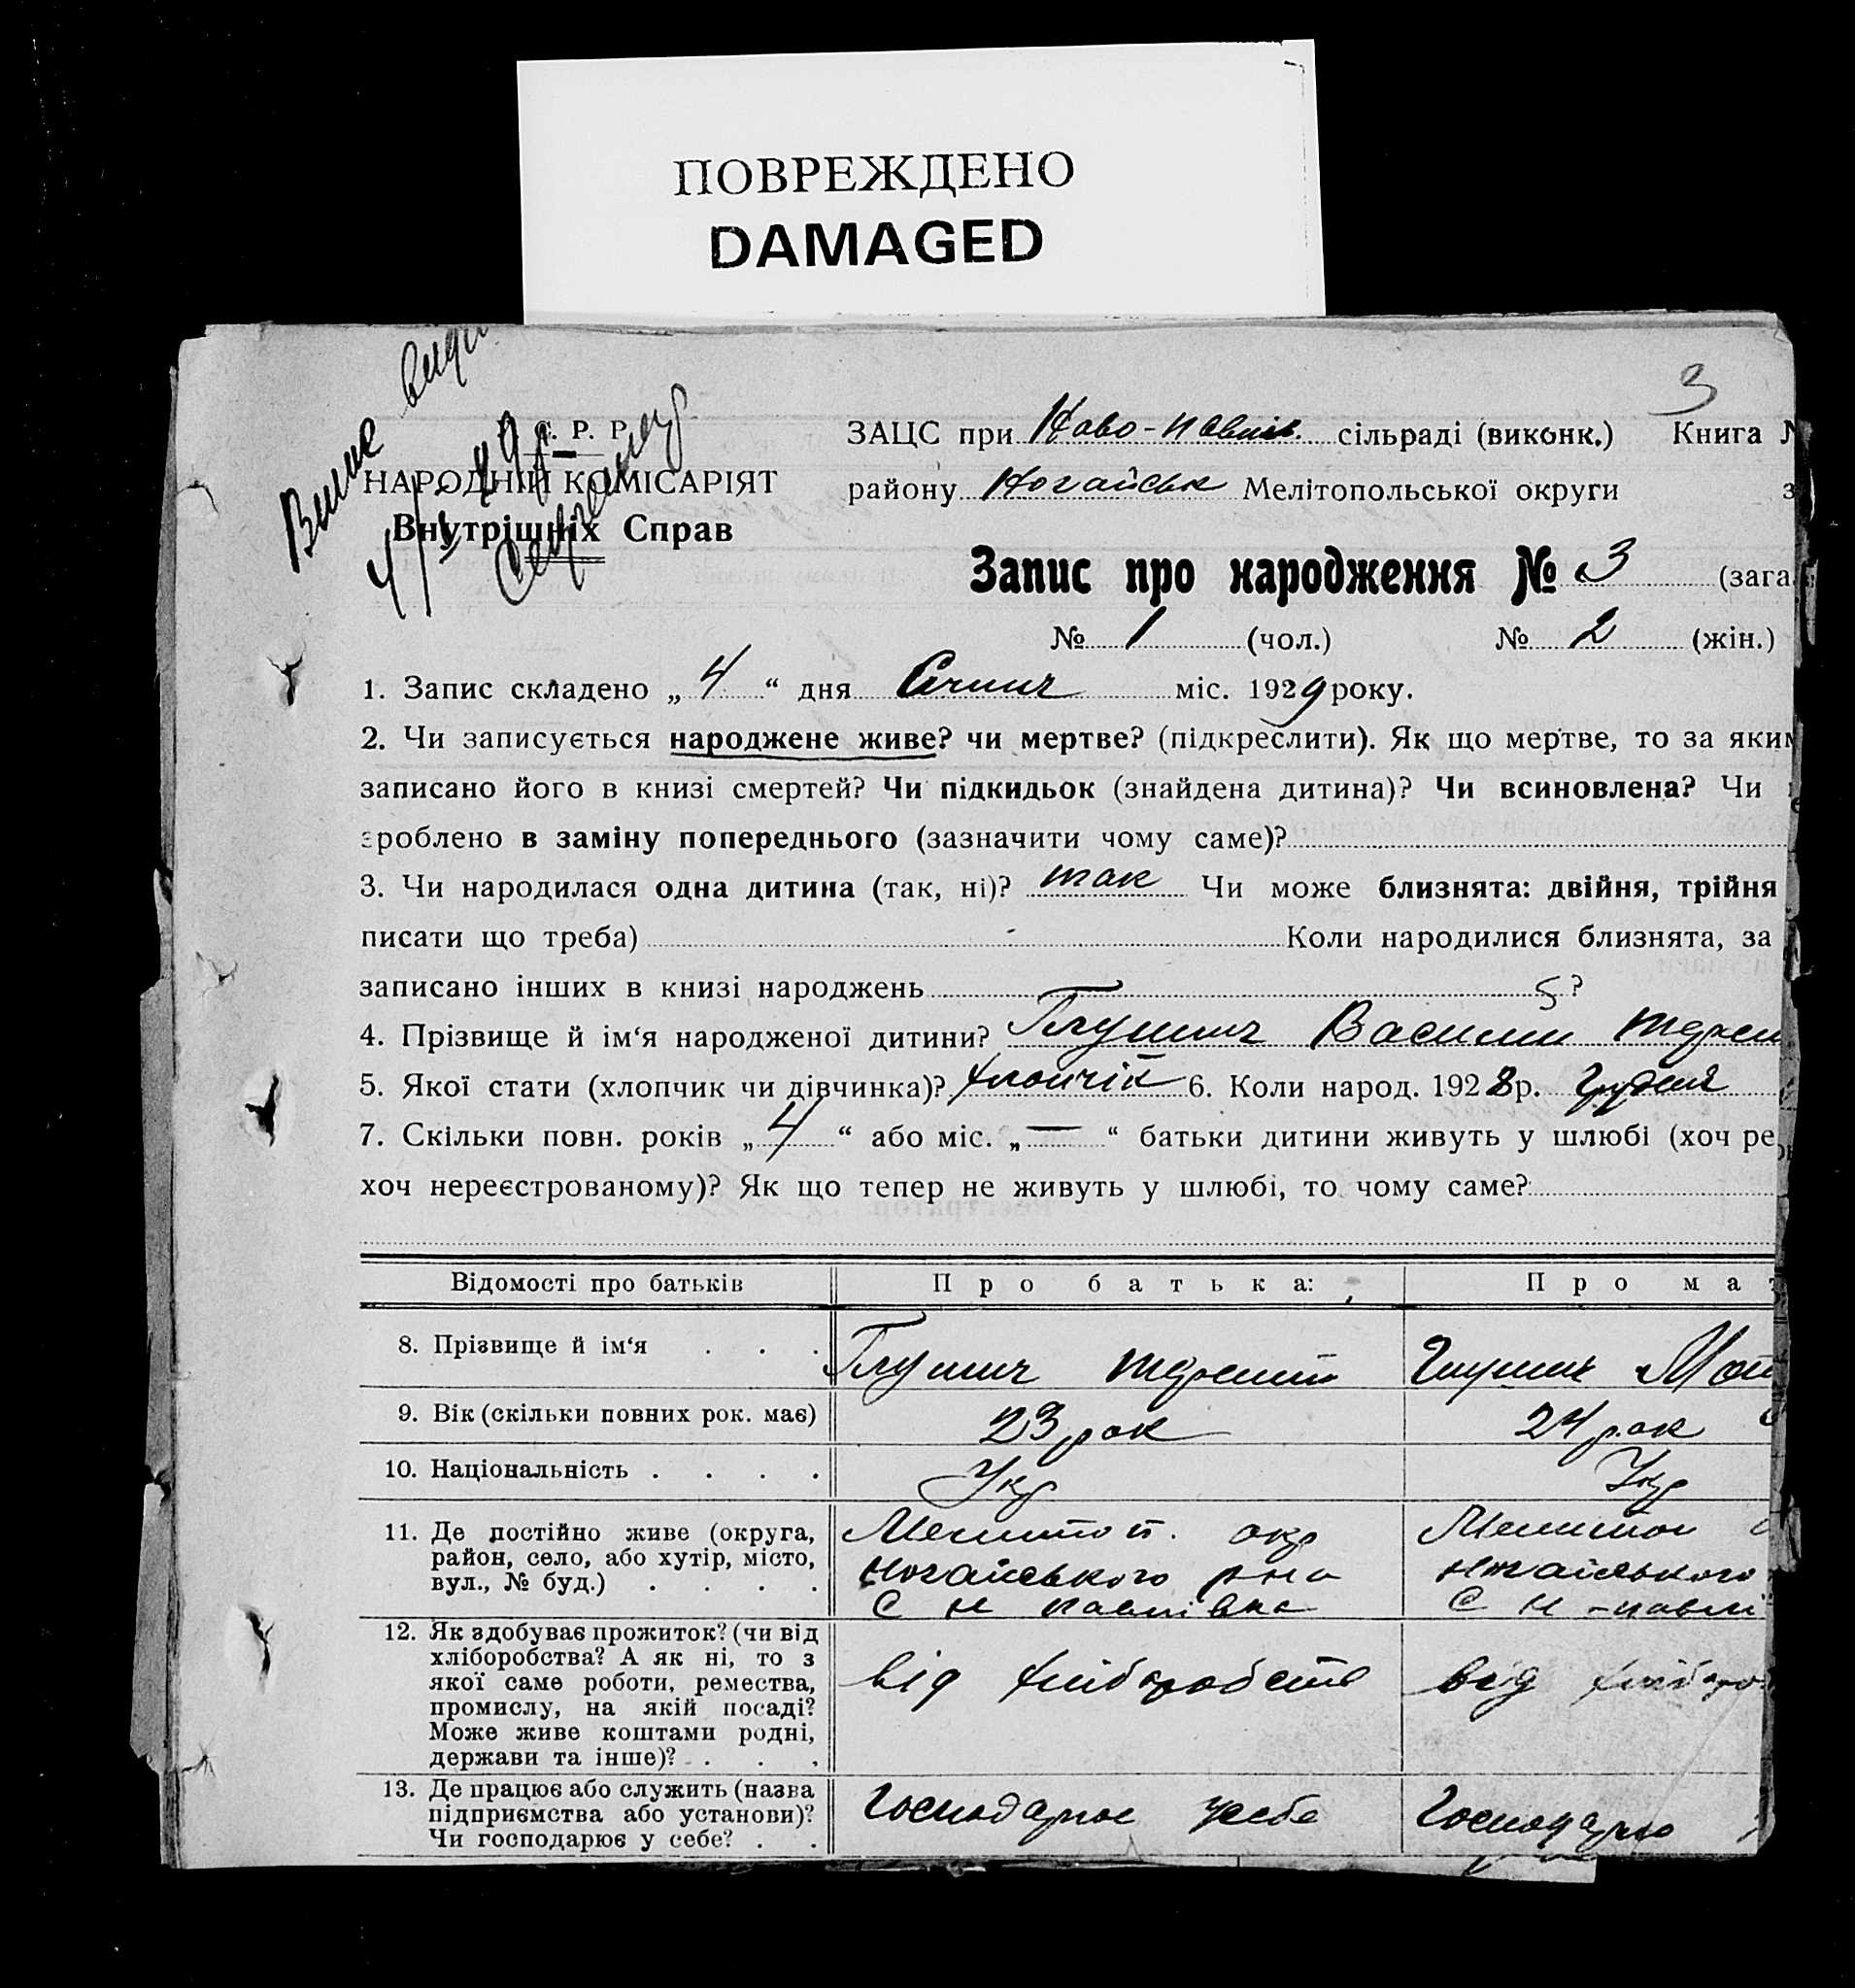 ПОВРЕЖДЕНО
DAMAGED
3
Витяг
4/I 29 р
С. Р. Р.
НАРОДНІЙ КОМІСАРІЯТ
Внутрішніх Справ
ЗАЦС при Ново-павлів. сільраді (виконк.) Книга №
району Ногайськ Мелітопольської округи
Запис про народження № 3 (зага
№ 1 (чол.) № 2 (жін.)
1. Запис складено „ 4 “ дня Січня міс. 1929 року.
2. Чи записується народжене живе? чи мертве? (підкреслити). Як що мертве, то за яким
записано його в книзі смертей? Чи підкидьок (знайдена дитина)? Чи всиновлена? Чи
зроблено в заміну попереднього (зазначити чому саме)?
3. Чи народилася одна дитина (так, ні)? так Чи може близнята: двійня, трійня
писати що треба) - Коли народилися близнята, за
записано інших в книзі народжень ?
4. Прізвище й ім‘я народженої дитини? Глушич Василий
5. Якої стати (хлопчик чи дівчинка)? хлопчік 6. Коли народ. 1928 р. Грудня
7. Скільки повн. років „ 4 “ або міс. „ — “ батьки дитини живуть у шлюбі (хоч ре
хоч нереєстрованому)? Як що тепер не живуть у шлюбі, то чому саме?
Відомості про батьків Про батька: Про мат
8. Прізвище й ім‘я . . . Глушич Глушич
9. Вік (скільки повних рок. має) 23 рок 24 рок
10. Національність . . . . Укр Укр
11. Де постійно живе (округа, Мелитоп. окр Мелитоп
район, село, або хутір, місто, Ногайського р-на Ногайського
вул., № буд.) . . . . С Н павлівка С Н-павлі
12. Як здобуває прожиток? (чи від
хліборобства? А як ні, то з
якої саме роботи, ремества, від хліборобств від хлібороб
промислу, на якій посаді?
Може живе коштами родні,
держави та інше)? . . .
13. Де працює або служить (назва Господарює усебе Господарює
підприємства або установи)?
Чи господарює у себе? . .